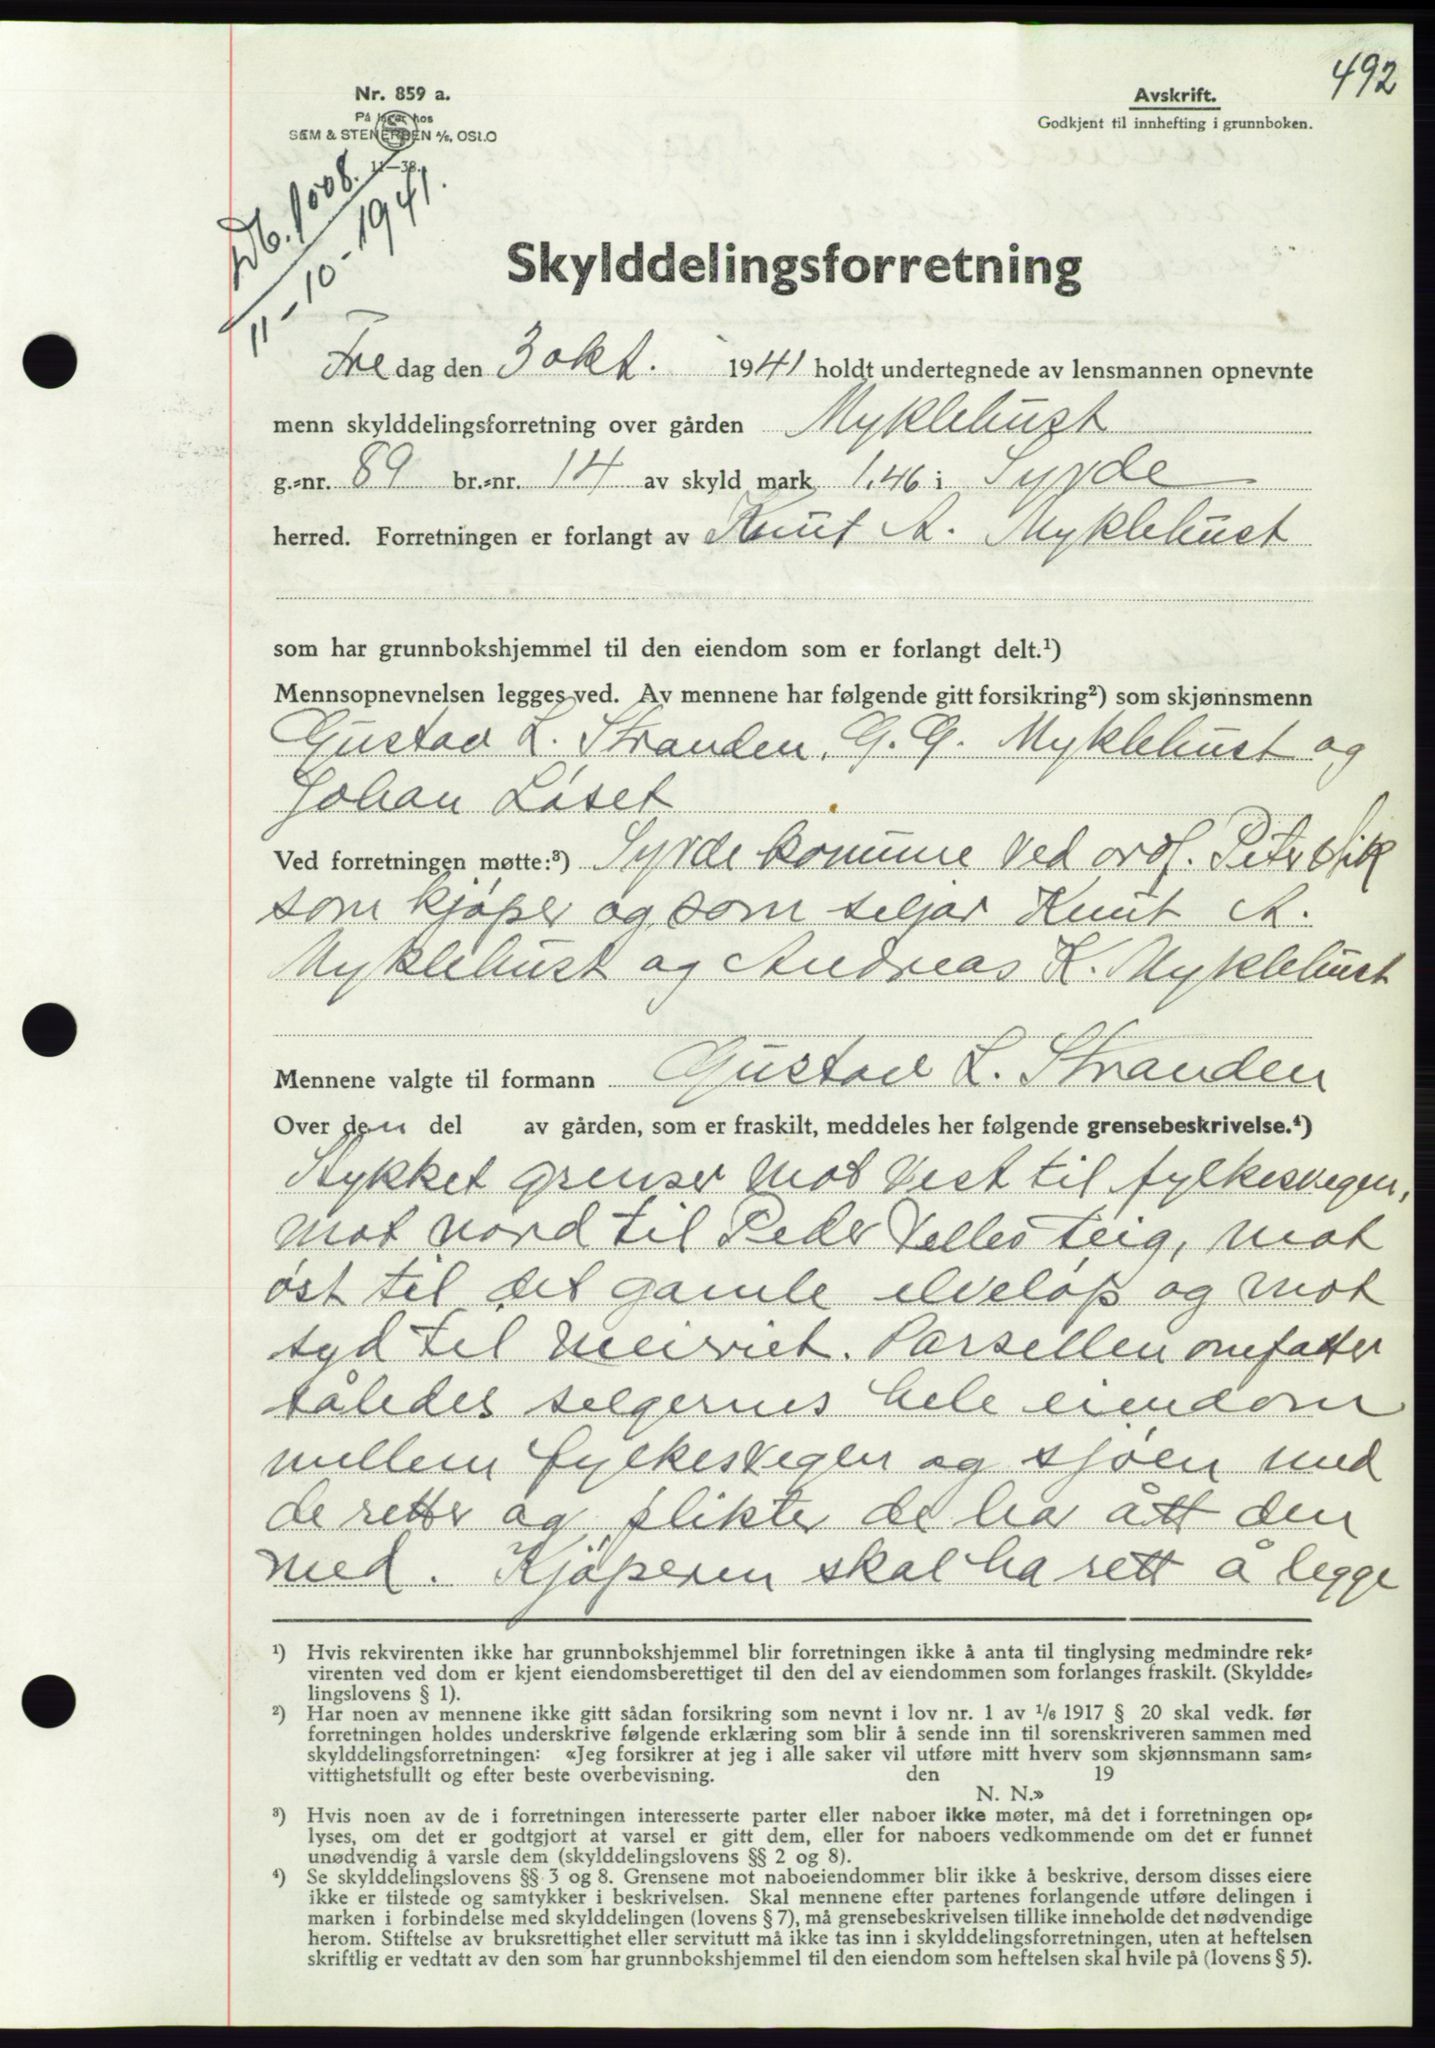 492
Nr. 859 a.
På lager hos
SEM & STENERSEN A/S, OSLO
11—38.
Avskrift.
Godkjent til innhefting i grunnboken.
Db. 1008.
11-10-1941.
Skylddelingsforretning
Fredag den 3 okt. 1941 holdt undertegnede av lensmannen opnevnte
menn skylddelingsforretning over gården Myklebust
g.=nr. 89 br.=nr. 14 av skyld mark 1.46 i Syvde
herred. Forretningen er forlangt av Knut A. Myklebust
som har grunnbokshjemmel til den eiendom som er forlangt delt.¹)
Mennsopnevnelsen legges ved. Av mennene har følgende gitt forsikring²) som skjønnsmenn
Gustav L. Stranden, G. G. Myklebust og
Johan Løset
Ved forretningen møtte:³) Syvde kommune ved ordf. Peter
som kjøper og som seljar Knut A.
Myklebust og Andreas K. Myklebust
Mennene valgte til formann Gustav L. Stranden
Over den del av gården, som er fraskilt, meddeles her følgende grensebeskrivelse.⁴)
Stykket grenser mot vest til fylkesvegen,
mot nord til Peder teig, mot
øst til det gamle elveløp og mot
syd til meieriet. Parsellen omfatter
således selgernes hele eiendom
mellem fylkesvegen og sjøen med
de retter og plikter de har ått den
med. Kjøperen skal ha rett å legge
¹) Hvis rekvirenten ikke har grunnbokshjemmel blir forretningen ikke å anta til tinglysing medmindre rek=
virenten ved dom er kjent eiendomsberettiget til den del av eiendommen som forlanges fraskilt. (Skyldde=
lingslovens § 1).
²) Har noen av mennene ikke gitt sådan forsikring som nevnt i lov nr. 1 av 1/6 1917 § 20 skal vedk. før
forretningen holdes underskrive følgende erklæring som blir å sende inn til sorenskriveren sammen med
skylddelingsforretningen: «Jeg forsikrer at jeg i alle saker vil utføre mitt hverv som skjønnsmann sam=
vittighetsfullt og efter beste overbevisning. den 19
N. N.»
³) Hvis noen av de i forretningen interesserte parter eller naboer ikke møter, må det i forretningen op=
lyses, om det er godtgjort at varsel er gitt dem, eller for naboers vedkommende om det er funnet
unødvendig å varsle dem (skylddelingslovens §§ 2 og 8).
⁴) Se skylddelingslovens §§ 3 og 8. Grensene mot naboeiendommer blir ikke å beskrive, dersom disses eiere
ikke er tilstede og samtykker i beskrivelsen. Skal mennene efter partenes forlangende utføre delingen i
marken i forbindelse med skylddelingen (lovens § 7), må grensebeskrivelsen tillike inneholde det nødvendige
herom. Stiftelse av bruksrettighet eller servitutt må ikke tas inn i skylddelingsforretningen, uten at heftelsen
skriftlig er vedtatt av den som har grunnbokshjemmel til den eiendom som heftelsen skal hvile på (lovens § 5).